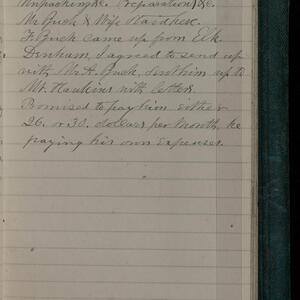 Unpacking &c. Preparation) &c.
Mr Buck & Wife
F. Buck came up from Elk.
Denham, I agreed to send up
with Mr A. Buck, sent him up to
Mr Hawkins with letter.
Promised to pay him either
26. or 30. dollars per Month, he
paying his own Expenses.